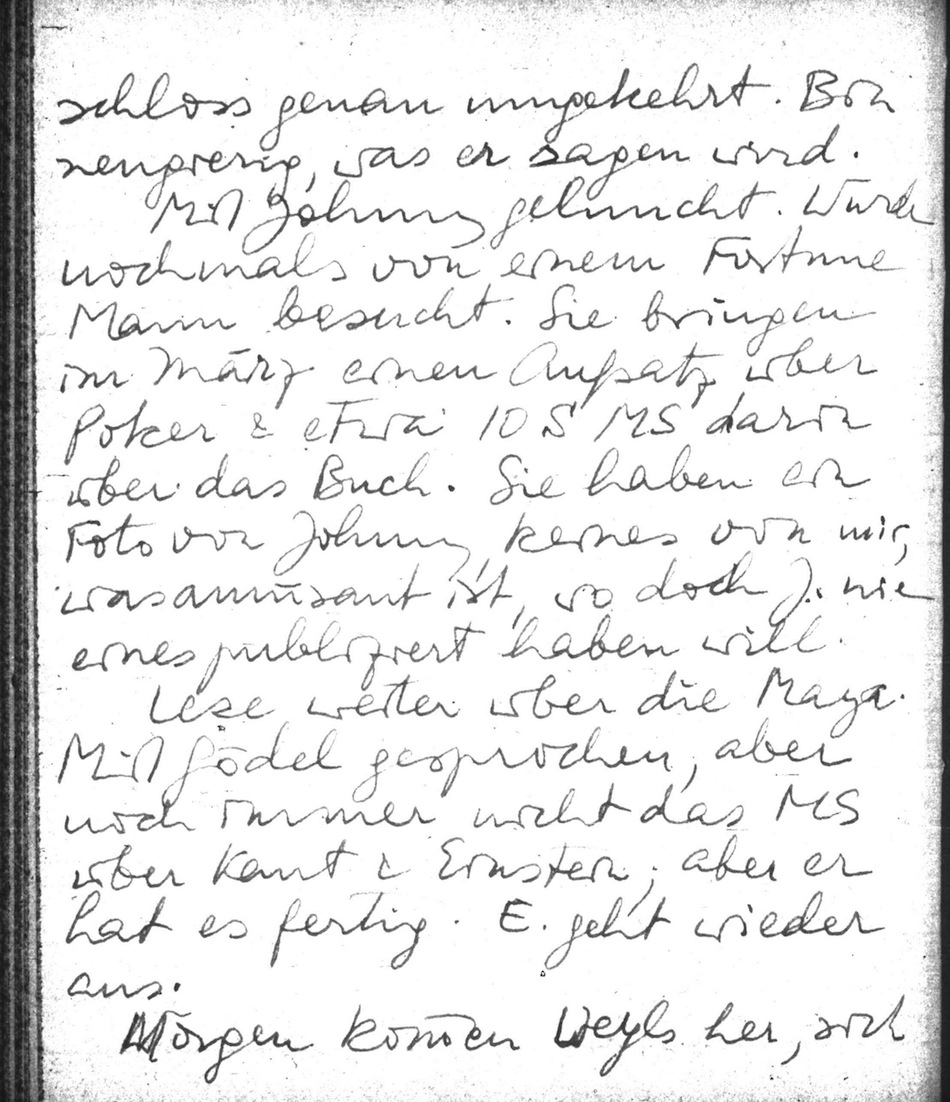 schloss genau umgekehrt. Bin
neugierig, was er sagen wird.
Mit Johnny geluncht. Wurde
nochmals von einem Fortune
Mann besucht. Sie bringen
im März einen Aufsatz über
Poker & etwa 10 S MS darin
über das Buch. Sie haben ein
Foto von Johnny, keines von mir,
was amüsant ist, wo doch J. nie
eines publiziert haben will.
Lese weiter über die Maya.
Mit Gödel gesprochen, aber
noch immer nicht das MS
über Kant & Einstein; aber er
hat es fertig. E. geht wieder
aus.
Morgen kom̄en Weyls her, sich